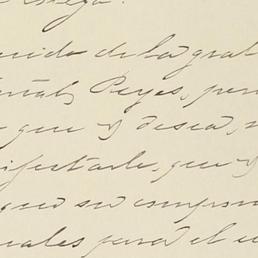 cuido de la grat
Reyes, per
que V desea,
ifestarle, que V
que su compro
uales para el